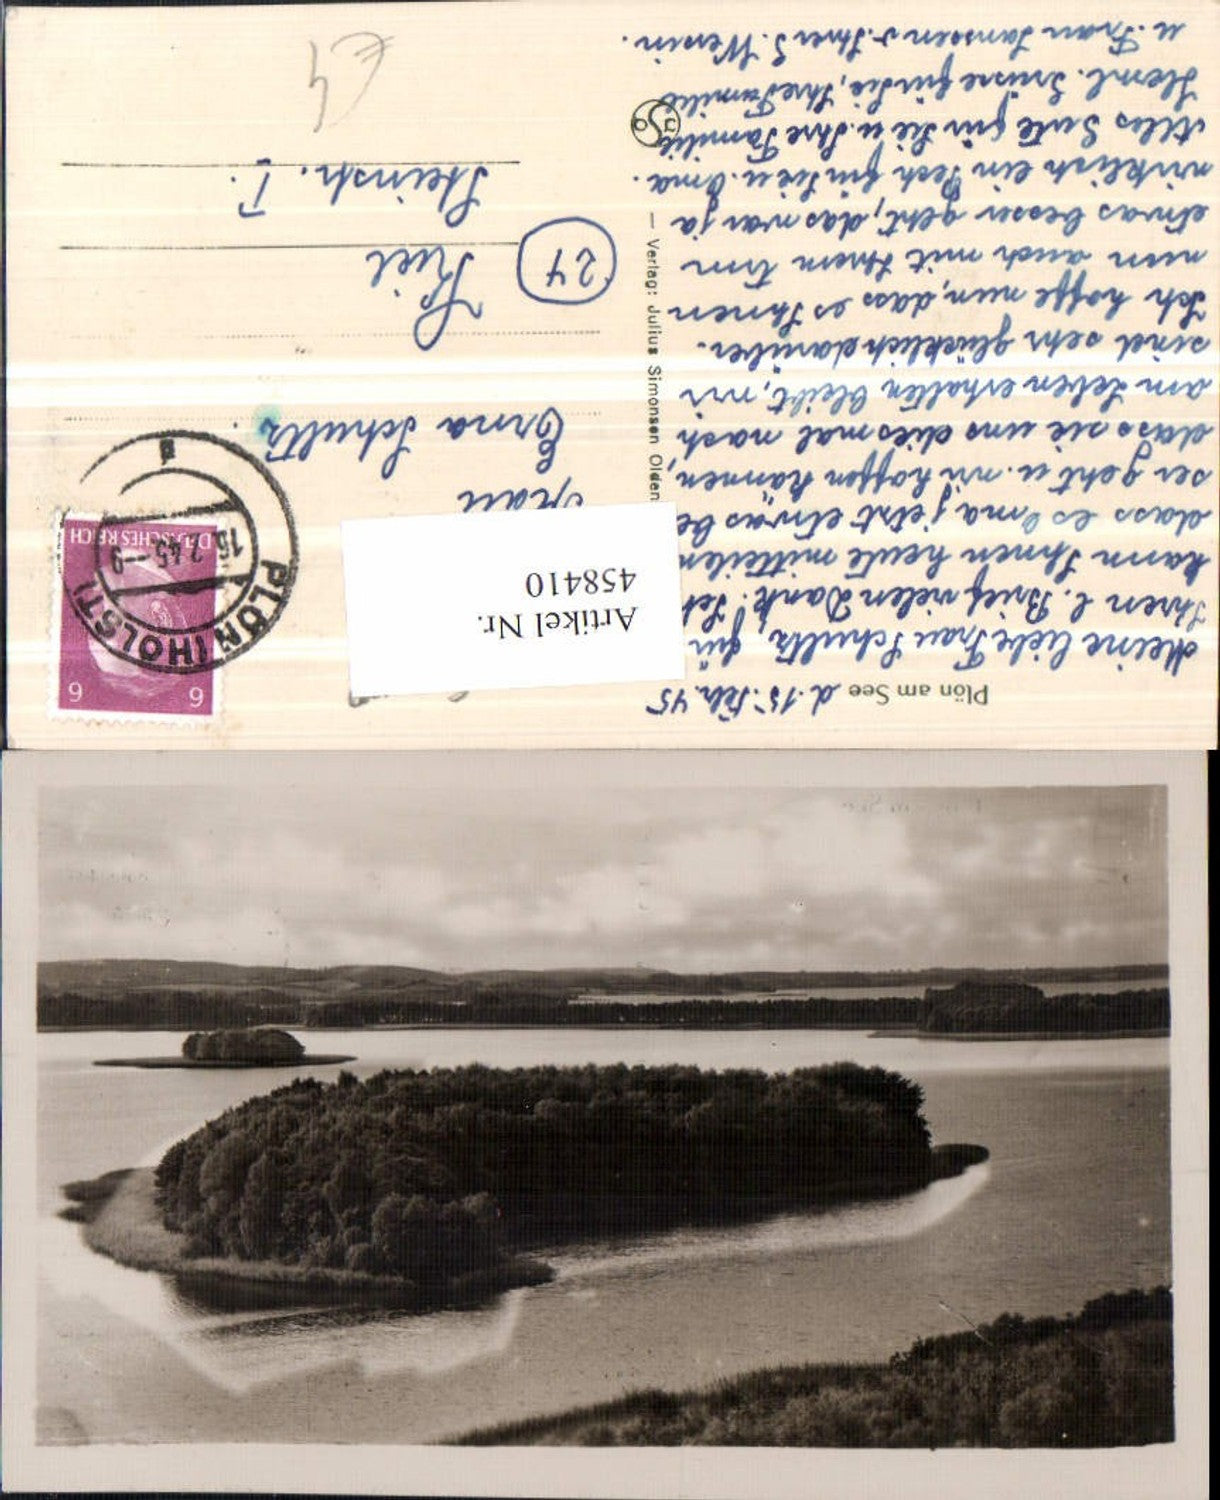 Plön am See
d. 15. Febr. 45
Meine liebe Frau Schultz, für
Ihren l. Brief vielen Dank! Ich
kann Ihnen heute mitteilen
dass es Oma jetzt etwas bes
ser geht u. wir hoffen können,
dass sie uns diesmal noch
am Leben erhalten bleibt, wir
sind sehr glücklich darüber.
Ich hoffe nun, dass es Ihnen
nun auch mit Ihrem Arm
etwas besser geht, das war ja
wirklich ein Pech für Sie u. Oma.
Alles Gute für Sie u. Ihre Familie
Herzl. Grüsse für Sie, Ihre Familie
u. Frau Janssen v. Ihrer
Verlag: Julius Simonsen Olden
Artikel Nr.
458410
Frau
Erna Schultz.
24
Kiel
Steinstr.
6 6
DEUTSCHES REICH
PLÖN (HOLST)
16. 2.45 -9
d
€4